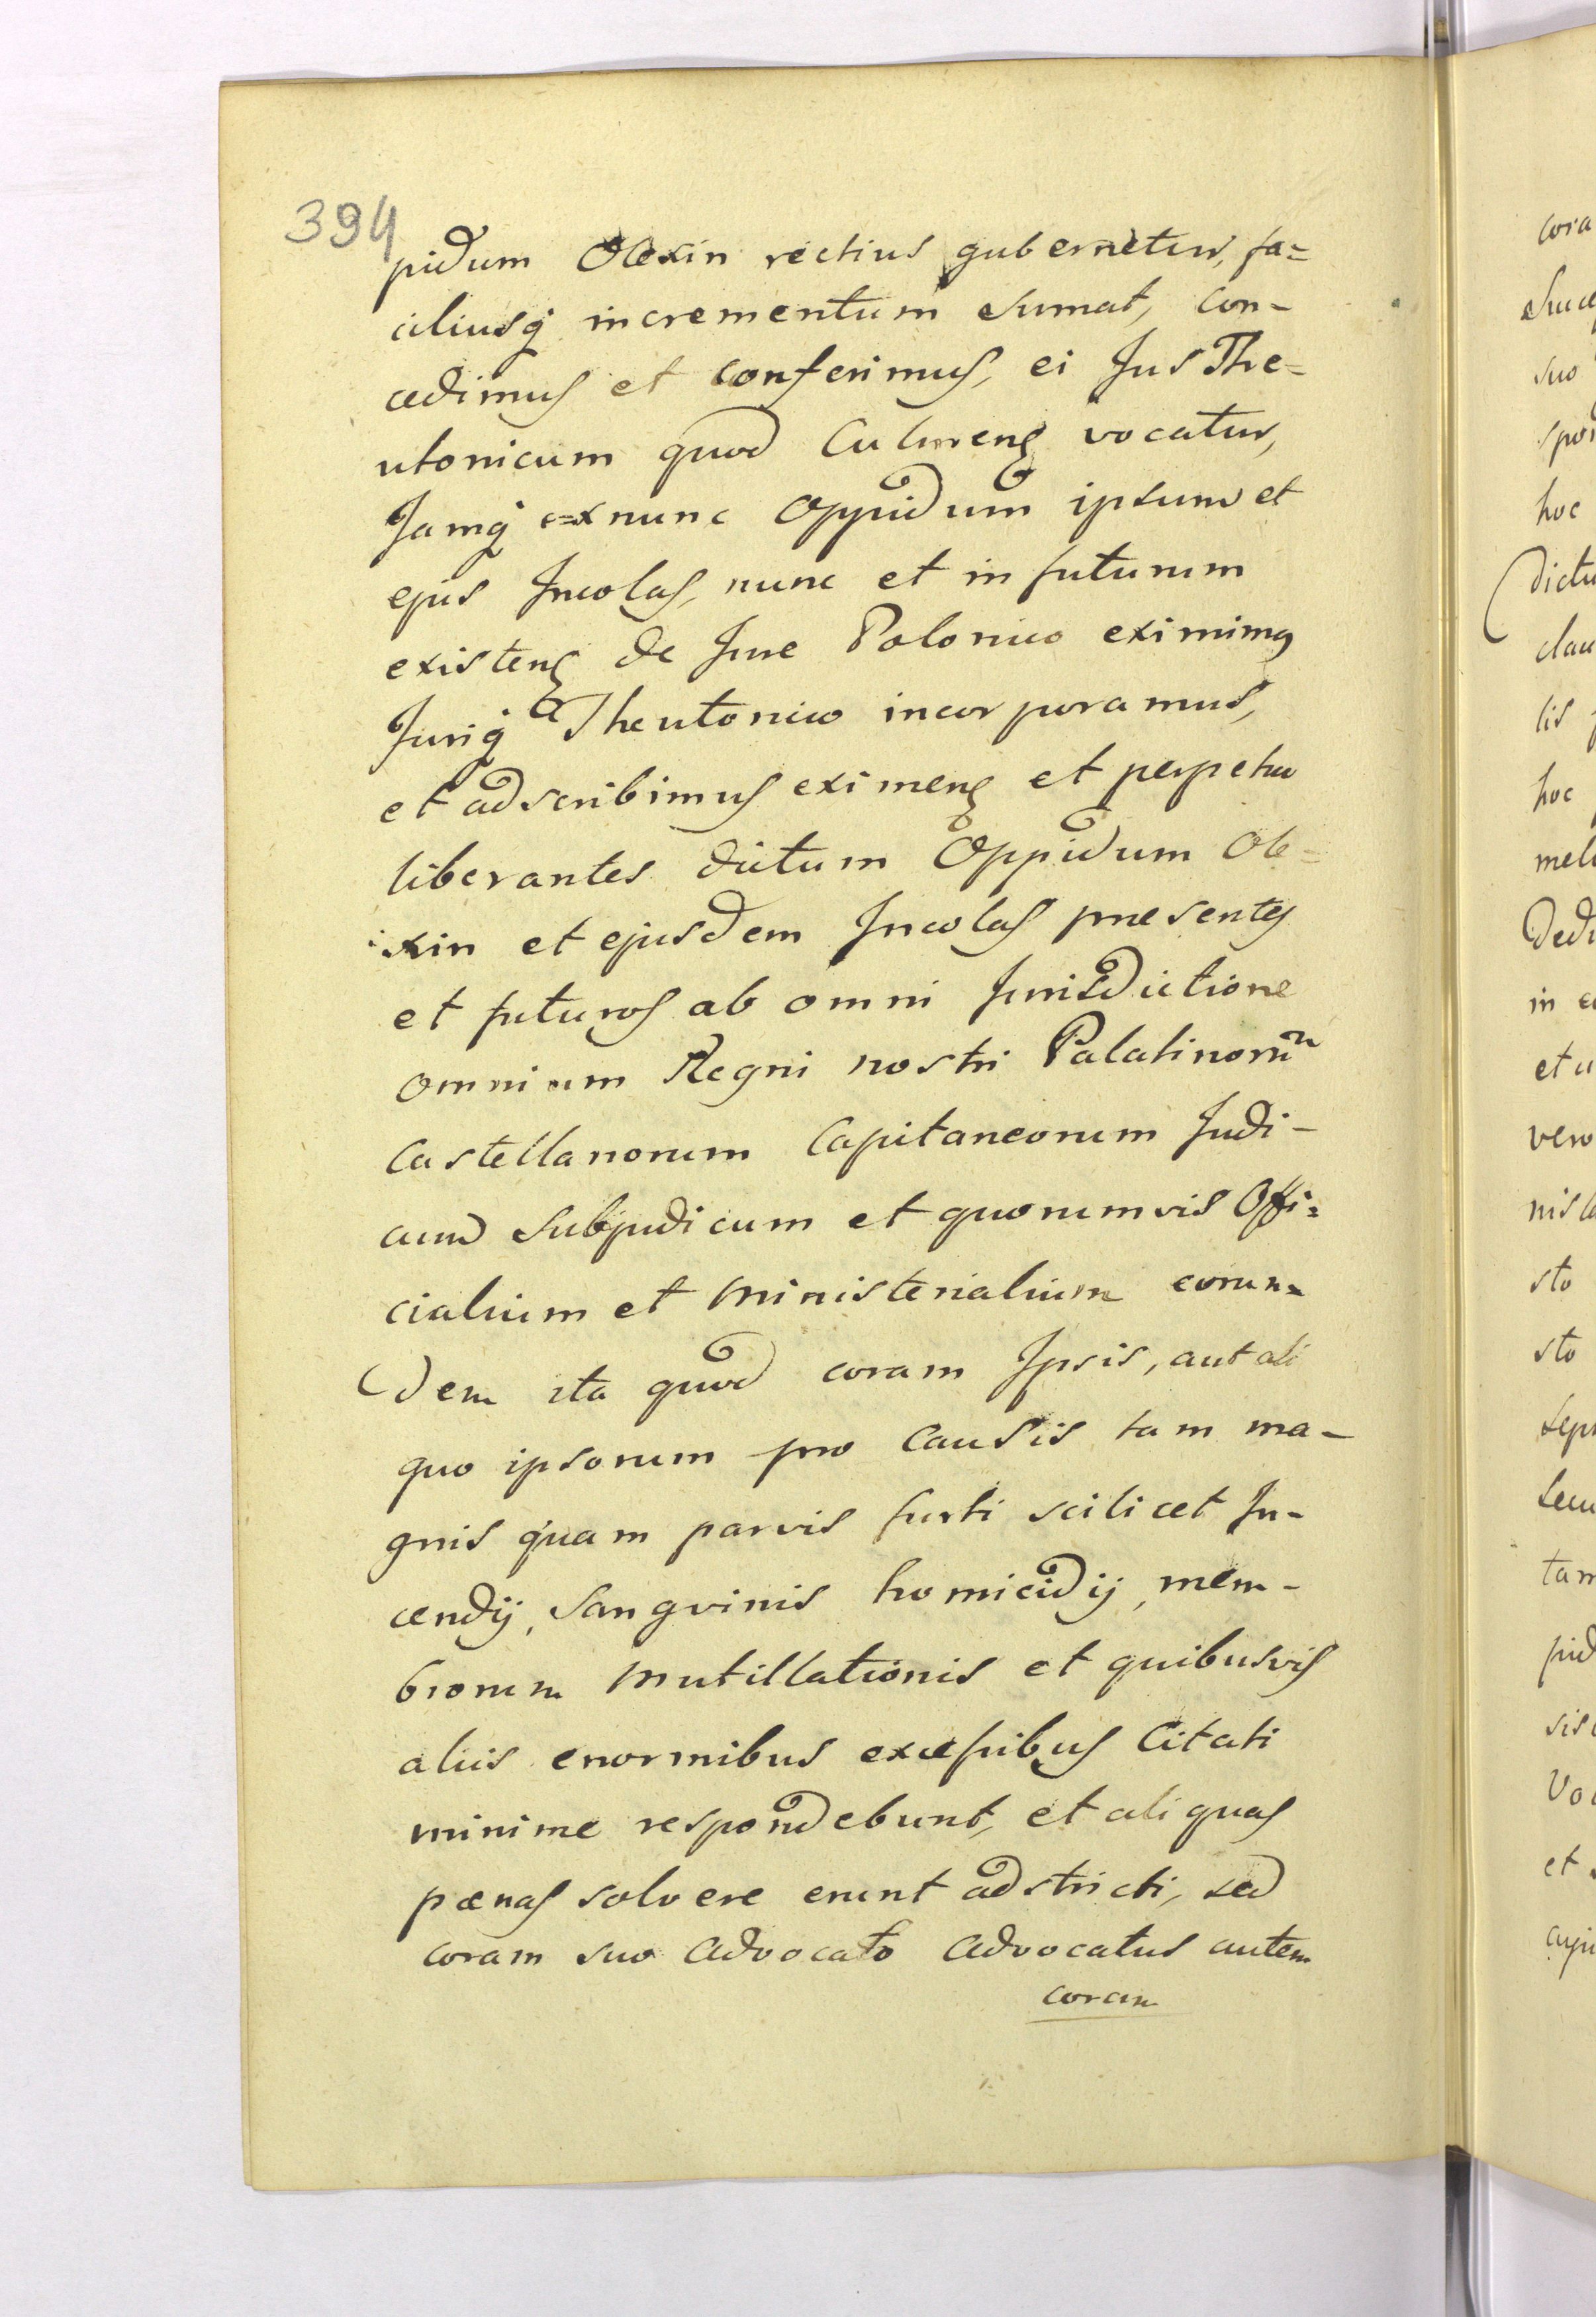 394
pidum Olexin rectius gubernetur, fa=
ciliusq incrementum sumat, con-
cedimus et conferimus, ei Jus The=
utonicum quod Culmens vocatur,
Jamq ex nunc Oppidum ipsum et
ejus Incolas, nunc et in futurum
existens de Jure Polonico eximimus
Juriq Theutonico incorporamus,
et adscribimus eximens et perpetuo
liberantes dictum Oppidum Ole=
xin et ejusdem Incolas presentes
et futuros ab omni Jurisdictione
omnium Regni nostri Palatinorum
Castellanorum Capitaneorum Judi-
cum Subjudicum et quorumvis Offi=
cialium et Ministerialium eorun=
dem ita quod coram Ipsis, aut ali
quo ipsorum pro Causis tam ma-
gnis quam parvis furti scilicet In-
cendij, Sangvinis homicidij, mem-
brorum Mutillationis et quibusvis
aliis enormibus excessibus Citati
minime respondebunt, et aliquas
pænas solvere erunt adstricti, sed
coram suo Advocato Advocatus autem
coram
cora
suo
hoc
dictu
clau
lis
hoc
Dedi
in
et
vero
nis
sto
sto
tam
et